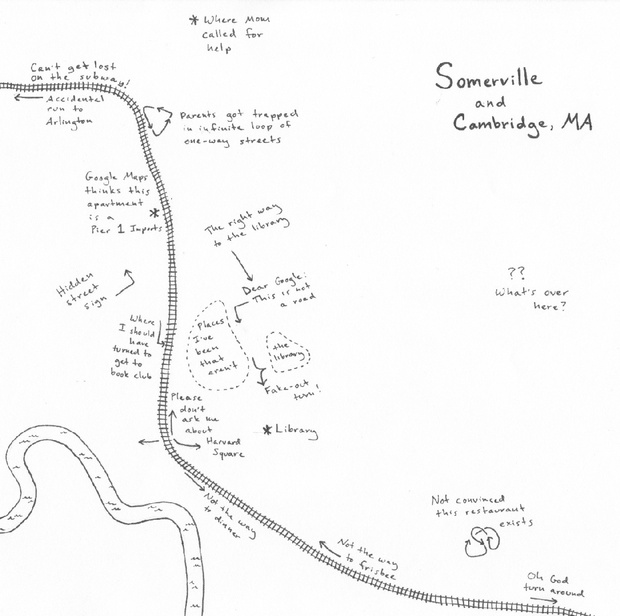 * Where Mom
called for
help
Somerville
and
Cambridge, MA
Can't get lost
on the subway!
Accidental
run to
Arlington
Parents got trapped
in infinite loop of
one-way streets
Google Maps
thinks this
apartment
is a
Pier 1 Imports
*
The right way
to the library
Hidden
street
sign
Dear Google:
This is not
a road
??
What's over
here?
Where
I should
have
turned to
get to
book club
Places
I've
been
that
aren't
the
library
Fake-out
turn!
Please
don't
ask me
about
Harvard
Square
* Library
Not the way
to dinner
Not the way
to frisbee
Not convinced
this restaurant
exists
Oh God
turn around